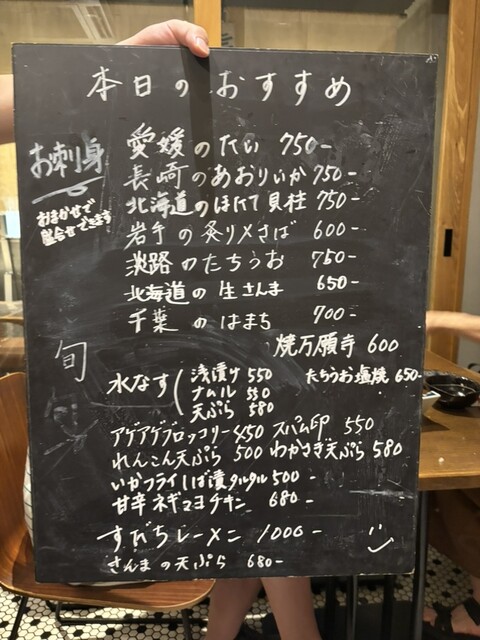 本日のおすすめ
お刺身
おまかせで
盛合せできます
愛媛のたい 750-
長崎のあおりいか 750-
北海道のほたて貝柱 750-
岩手の炙り〆さば 600-
淡路のたちうお 750-
北海道の生さんま 650-
千葉のはまち 700-
焼万願寺 600
旬
水なす
浅漬け 550
ナムル 550
天ぷら 580
たちうお塩焼 650-
アゲアゲブロッコリー 450 スパム卵 550
れんこん天ぷら 500 わかさぎ天ぷら 580
いかフライしば漬タルタル 500-
甘辛ネギマヨチキン 680-
すだちレーメン 1000-
さんまの天ぷら 680-